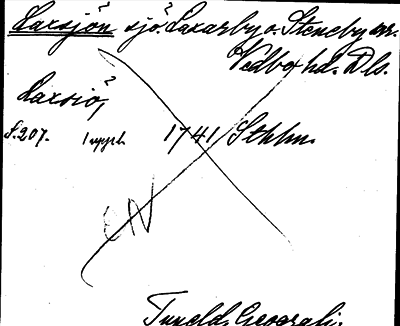 Laxsjön sjö. Laxarby o. Steneby snr.
Vedbo hd. Dls.
Laxsiö,
S. 207. 1 uppl. 1741 Sthlm.
Tunelds Geografi.